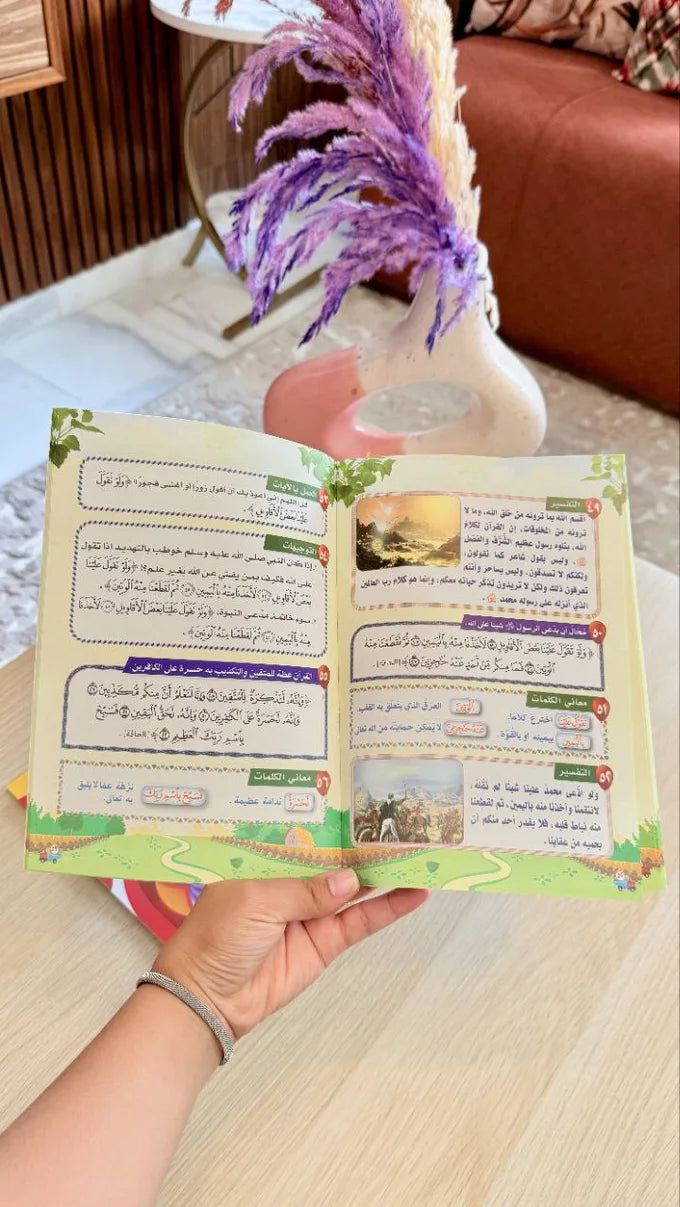 ٤٩ التفسير
أقسم الله بما ترونه من خلق الله، وما لا
ترونه من المخلوقات، إن القرآن لكلام
الله، يتلوه رسول عظيم الشَّرَف والفضل
، وليس بقول شاعر كما تقولون،
ولكنكم لا تصدقون، وليس بساحر وأنتم
تعرفون ذلك ولكن لا تريدون تذكر حياته معكم، وإنما هو كلام رب العالمين
الذي أنزله على رسوله محمد ﷺ.
٥٠ مُحال أن يدعي الرسول ﷺ شيئا على الله.
﴿وَلَوْ تَقَوَّلَ عَلَيْنَا بَعْضَ الْأَقَاوِيلِ ٤٤ لَأَخَذْنَا مِنْهُ بِالْيَمِينِ ٤٥ ثُمَّ لَقَطَعْنَا مِنْهُ
الْوَتِينَ ٤٦ فَمَا مِنكُم مِّنْ أَحَدٍ عَنْهُ حَاجِزِينَ ٤٧﴾
٥١ معاني الكلمات
تَقَوَّلَ عَلَيْنَا اخترع كلاما. الْوَتِينَ العرق الذي يتعلق به القلب.
بِالْيَمِينِ بيمينه أو بالقوة. عَنْهُ حَاجِزِينَ لا يمكن حمايته من الله تعالى
٥٢ التفسير
ولو ادَّعى محمد علينا شيئًا لم نَقُلْه،
لانتقمنا وأخذنا منه باليمين، ثم لقطعنا
منه نياط قلبه، فلا يقدر أحد منكم أن
يحميه من عقابنا.
٥٣ العمل بالآيات
قل: اللهم إني أعوذ بك أن أقول زورًا أو أغشى فجورًا، ﴿وَلَوْ تَقَوَّلَ
عَلَيْنَا بَعْضَ الْأَقَاوِيلِ﴾.
٥٤ التوجيهات
١. إذا كان النبي صلى الله عليه وسلم خوطب بالتهديد إذا تقول
على الله فكيف بمن يفتي عن الله بغير علم؟! ﴿وَلَوْ تَقَوَّلَ عَلَيْنَا
بَعْضَ الْأَقَاوِيلِ ٤٤ لَأَخَذْنَا مِنْهُ بِالْيَمِينِ ٤٥ ثُمَّ لَقَطَعْنَا مِنْهُ الْوَتِينَ﴾.
٢. سوء خاتمة مدعي النبوة، ﴿وَلَوْ تَقَوَّلَ عَلَيْنَا بَعْضَ الْأَقَاوِيلِ ٤٤ لَأَخَذْنَا
مِنْهُ بِالْيَمِينِ ٤٥ ثُمَّ لَقَطَعْنَا مِنْهُ الْوَتِينَ﴾.
٥٥ القرآن عظة للمتقين والتكذيب به حسرة على الكافرين.
﴿وَإِنَّهُ لَتَذْكِرَةٌ لِّلْمُتَّقِينَ ٤٨ وَإِنَّا لَنَعْلَمُ أَنَّ مِنكُم مُّكَذِّبِينَ ٤٩
وَإِنَّهُ لَحَسْرَةٌ عَلَى الْكَافِرِينَ ٥٠ وَإِنَّهُ لَحَقُّ الْيَقِينِ ٥١ فَسَبِّحْ
بِاسْمِ رَبِّكَ الْعَظِيمِ ٥٢﴾ [الحاقة].
٥٦ معاني الكلمات
لَحَسْرَةٌ ندامة عظيمة. فَسَبِّحْ بِاسْمِ رَبِّكَ نزهه عما لا يليق
به تعالى.